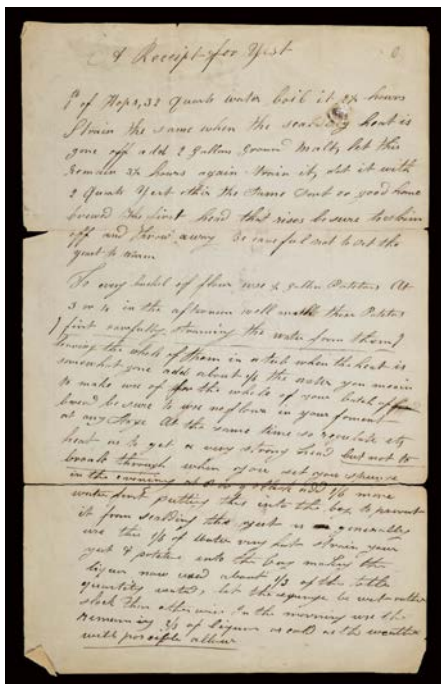 A Receipt for Yist
of Hops, 32 Quarts water boil it 2½ hours
Strain the same when the scalding heat is
gone off add 2 Gallons Ground Malt, let this
remain hours again strain it, set it with
2 Quarts Yest other the same sort or good home
brewed the first head that rises be sure to skim
off and throw away be careful not to set the
yest to warm
To every bushel of flour use Gallon Potatoes At
3 or 4 in the afternoon well mash these Potatoes
first carefully straining the water from them
leaving the whole of them in a tub when the heat is
somewhat gone add about the water you mean
to make use of for the whole of your batch of
bread be sure to use no flour in your foment
at any stage At the same time so regulate its
heat as to get a very strong head but not to
break through when you set your spunge
in the evening at 8 or 9 o clock add 1/6 more
water first putting this into the box to prevent
it from scalding the yest generally
use this 1/6 of water very hot strain your
yest & potatoes into the box making the
liquor now used about of the
quantity wanted, let the spunge be wet rather
slack than otherwise In the morning use the
remaining of liquor as cold as the weather
will possible allow